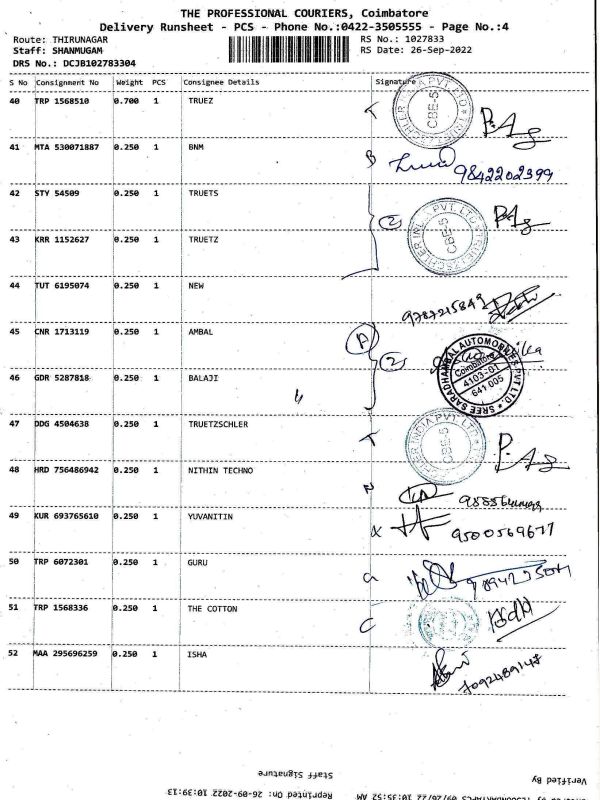 THE PROFESSIONAL COURIERS, Coimbatore
Delivery Runsheet - PCS - Phone No.:0422-3505555 - Page No.:4
Route: THIRUNAGAR RS No.: 1027833
Staff: SHANMUGAM RS Date: 26-Sep-2022
DRS No.: DCJB102783304
S No Consignment No Weight PCS Consignee Details Signature
40 TRP 1568510 0.700 1 TRUEZ T CBE-5
41 MTA 530071887 0.250 1 BNM B 9842202399
42 STY 54509 0.250 1 TRUETS
2 CBE-5
43 KRR 1152627 0.250 1 TRUETZ
44 TUT 6195074 0.250 1 NEW 9787215849
45 CNR 1713119 0.250 1 AMBAL A
2 SREE SARADHAMBAL AUTOMOBILES PVT LTD. Coimbatore 4103-01 641 005
46 GDR 5287818 0.250 1 BALAJI
47 DDG 4504638 0.250 1 TRUETZSCHLER T CBE-5
48 HRD 756486942 0.250 1 NITHIN TECHNO N
49 KUR 693765610 0.250 1 YUVANITIN 9500569677
50 TRP 6072301 0.250 1 GURU G
51 TRP 1568336 0.250 1 THE COTTON C
52 MAA 295696259 0.250 1 ISHA 7092489147
Staff Signature Verified By
Reprinted On: 26-09-2022 10:39:13
09/26/22 10:35:52 AM